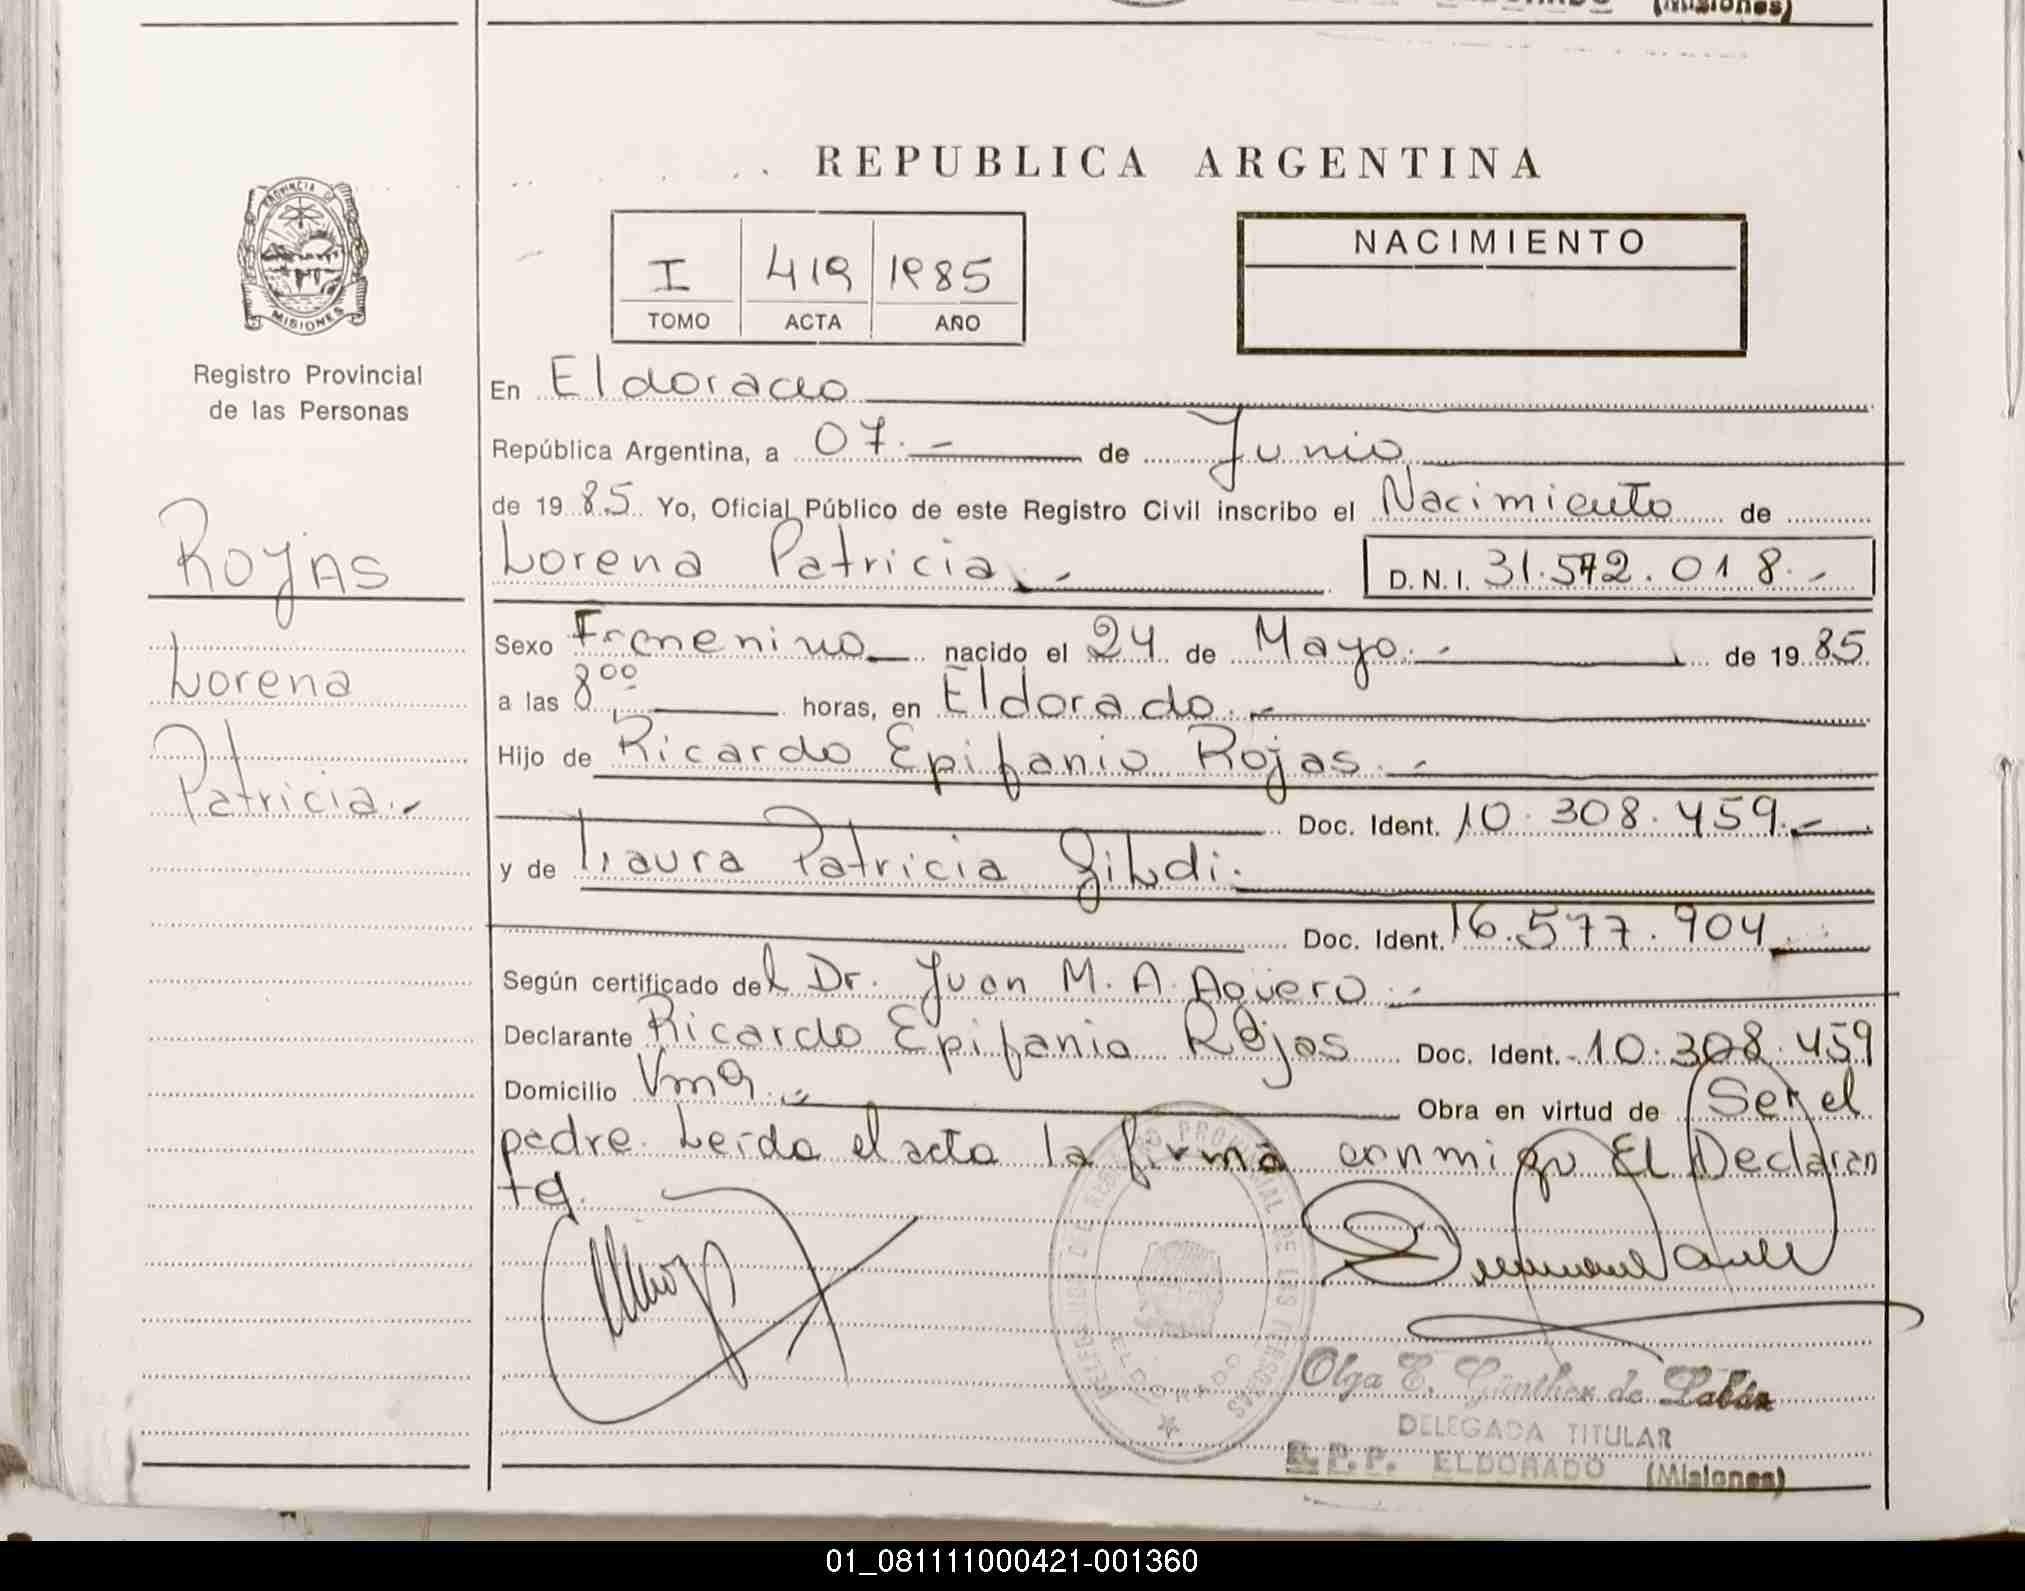 (Misiones)
REPUBLICA ARGENTINA
PROVINCIA D
MISIONES
Registro Provincial
de las Personas
I 419 1985
TOMO ACTA AÑO
NACIMIENTO
En Eldorado
República Argentina, a 07.- de Junio
de 1985 Yo, Oficial Público de este Registro Civil inscribo el Nacimiento de
Lorena Patricia.- D.N.I. 31.572.018.-
ROJAS
Lorena
Patricia.-
Sexo Femenino nacido el 24 de Mayo.- de 1985
a las 8,00 horas, en Eldorado.-
Hijo de Ricardo Epifanio Rojas.-
Doc. Ident. 10.308.459.-
y de Laura Patricia
Doc. Ident. 16.577.904
Según certificado del Dr. Juan M. A. Agüero.-
Declarante Ricardo Epifanio Rojas Doc. Ident. 10.308.459
Domicilio Obra en virtud de Ser el
padre. Leída el acta la firma conmigo El Declaran
te.
DELEGACION DE REGISTRO PROVINCIAL DE LAS PERSONAS
ELDORADO
Olga E. Günther de
DELEGADA TITULAR
R.P.P. ELDORADO (Misiones)
01_081111000421-001360